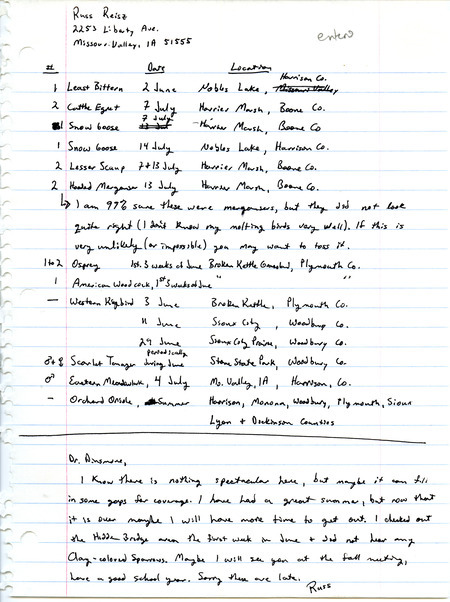 Russ Reisz
2253 Liberty Ave.
Missouri Valley, IA 51555
entero
# Date Location
1 Least Bittern 2 June Nobles Lake, Harrison Co.
2 Cattle Egret 7 July Harrier Marsh, Boone Co.
1 Snow Goose 7 July Harrier Marsh, Boone Co
1 Snow Goose 14 July Nobles Lake, Harrison Co.
2 Lesser Scaup 7+13 July Harrier Marsh, Boone Co.
2 Hooded Merganser 13 July Harrier Marsh, Boone Co.
I am 97% sure these were mergansers, but they did not look
quite right (I don't know my molting birds very well). If this is
very unlikely (or impossible) you may want to toss it.
1 to 2 Osprey 1st 3 weeks of June Broken Kettle Grassland, Plymouth Co.
1 American Woodcock, 1st 3 weeks of June " "
— Western Kingbird 3 June Broken Kettle, Plymouth Co.
11 June Sioux City, Woodbury Co.
29 June Sioux City Prairie, Woodbury Co.
♂+♀ Scarlet Tanager periodically during June Stone State Park, Woodbury Co.
♂ Eastern Meadowlark, 4 July Mo. Valley, IA, Harrison, Co.
— Orchard Oriole, Summer Harrison, Monona, Woodbury, Plymouth, Sioux
Lyon + Dickinson Counties
Dr. Dinsmore,
I know there is nothing spectacular here, but maybe it can fill
in some gaps for coverage. I have had a great summer, but now that
it is over maybe I will have more time to get out. I checked out
the Hidden Bridge area the first week in June + did not hear any
Clay-colored Sparrows. Maybe I will see you at the fall meeting,
have a good school year. Sorry these are late.
Russ